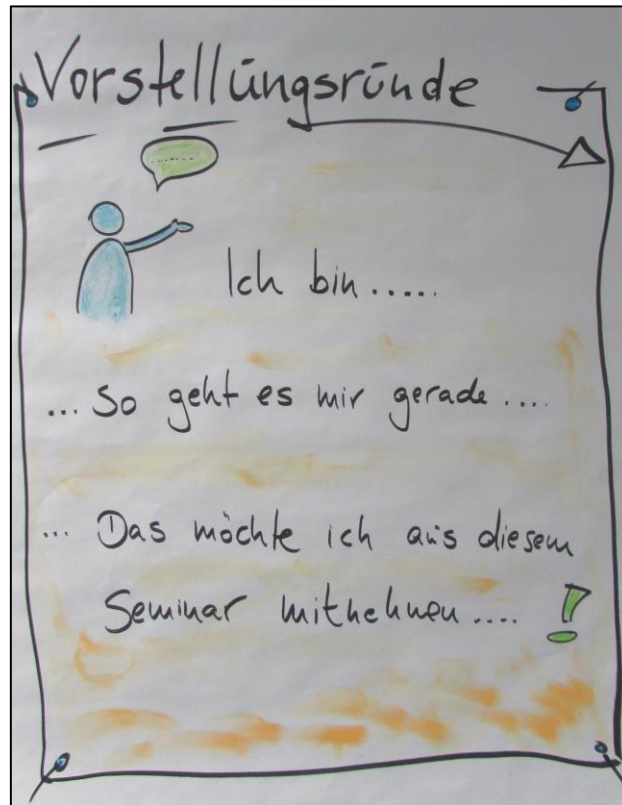 Vorstellungsrunde
.......
Ich bin.....
... So geht es mir gerade....
... Das möchte ich aus diesem
Seminar mitnehmen.... !